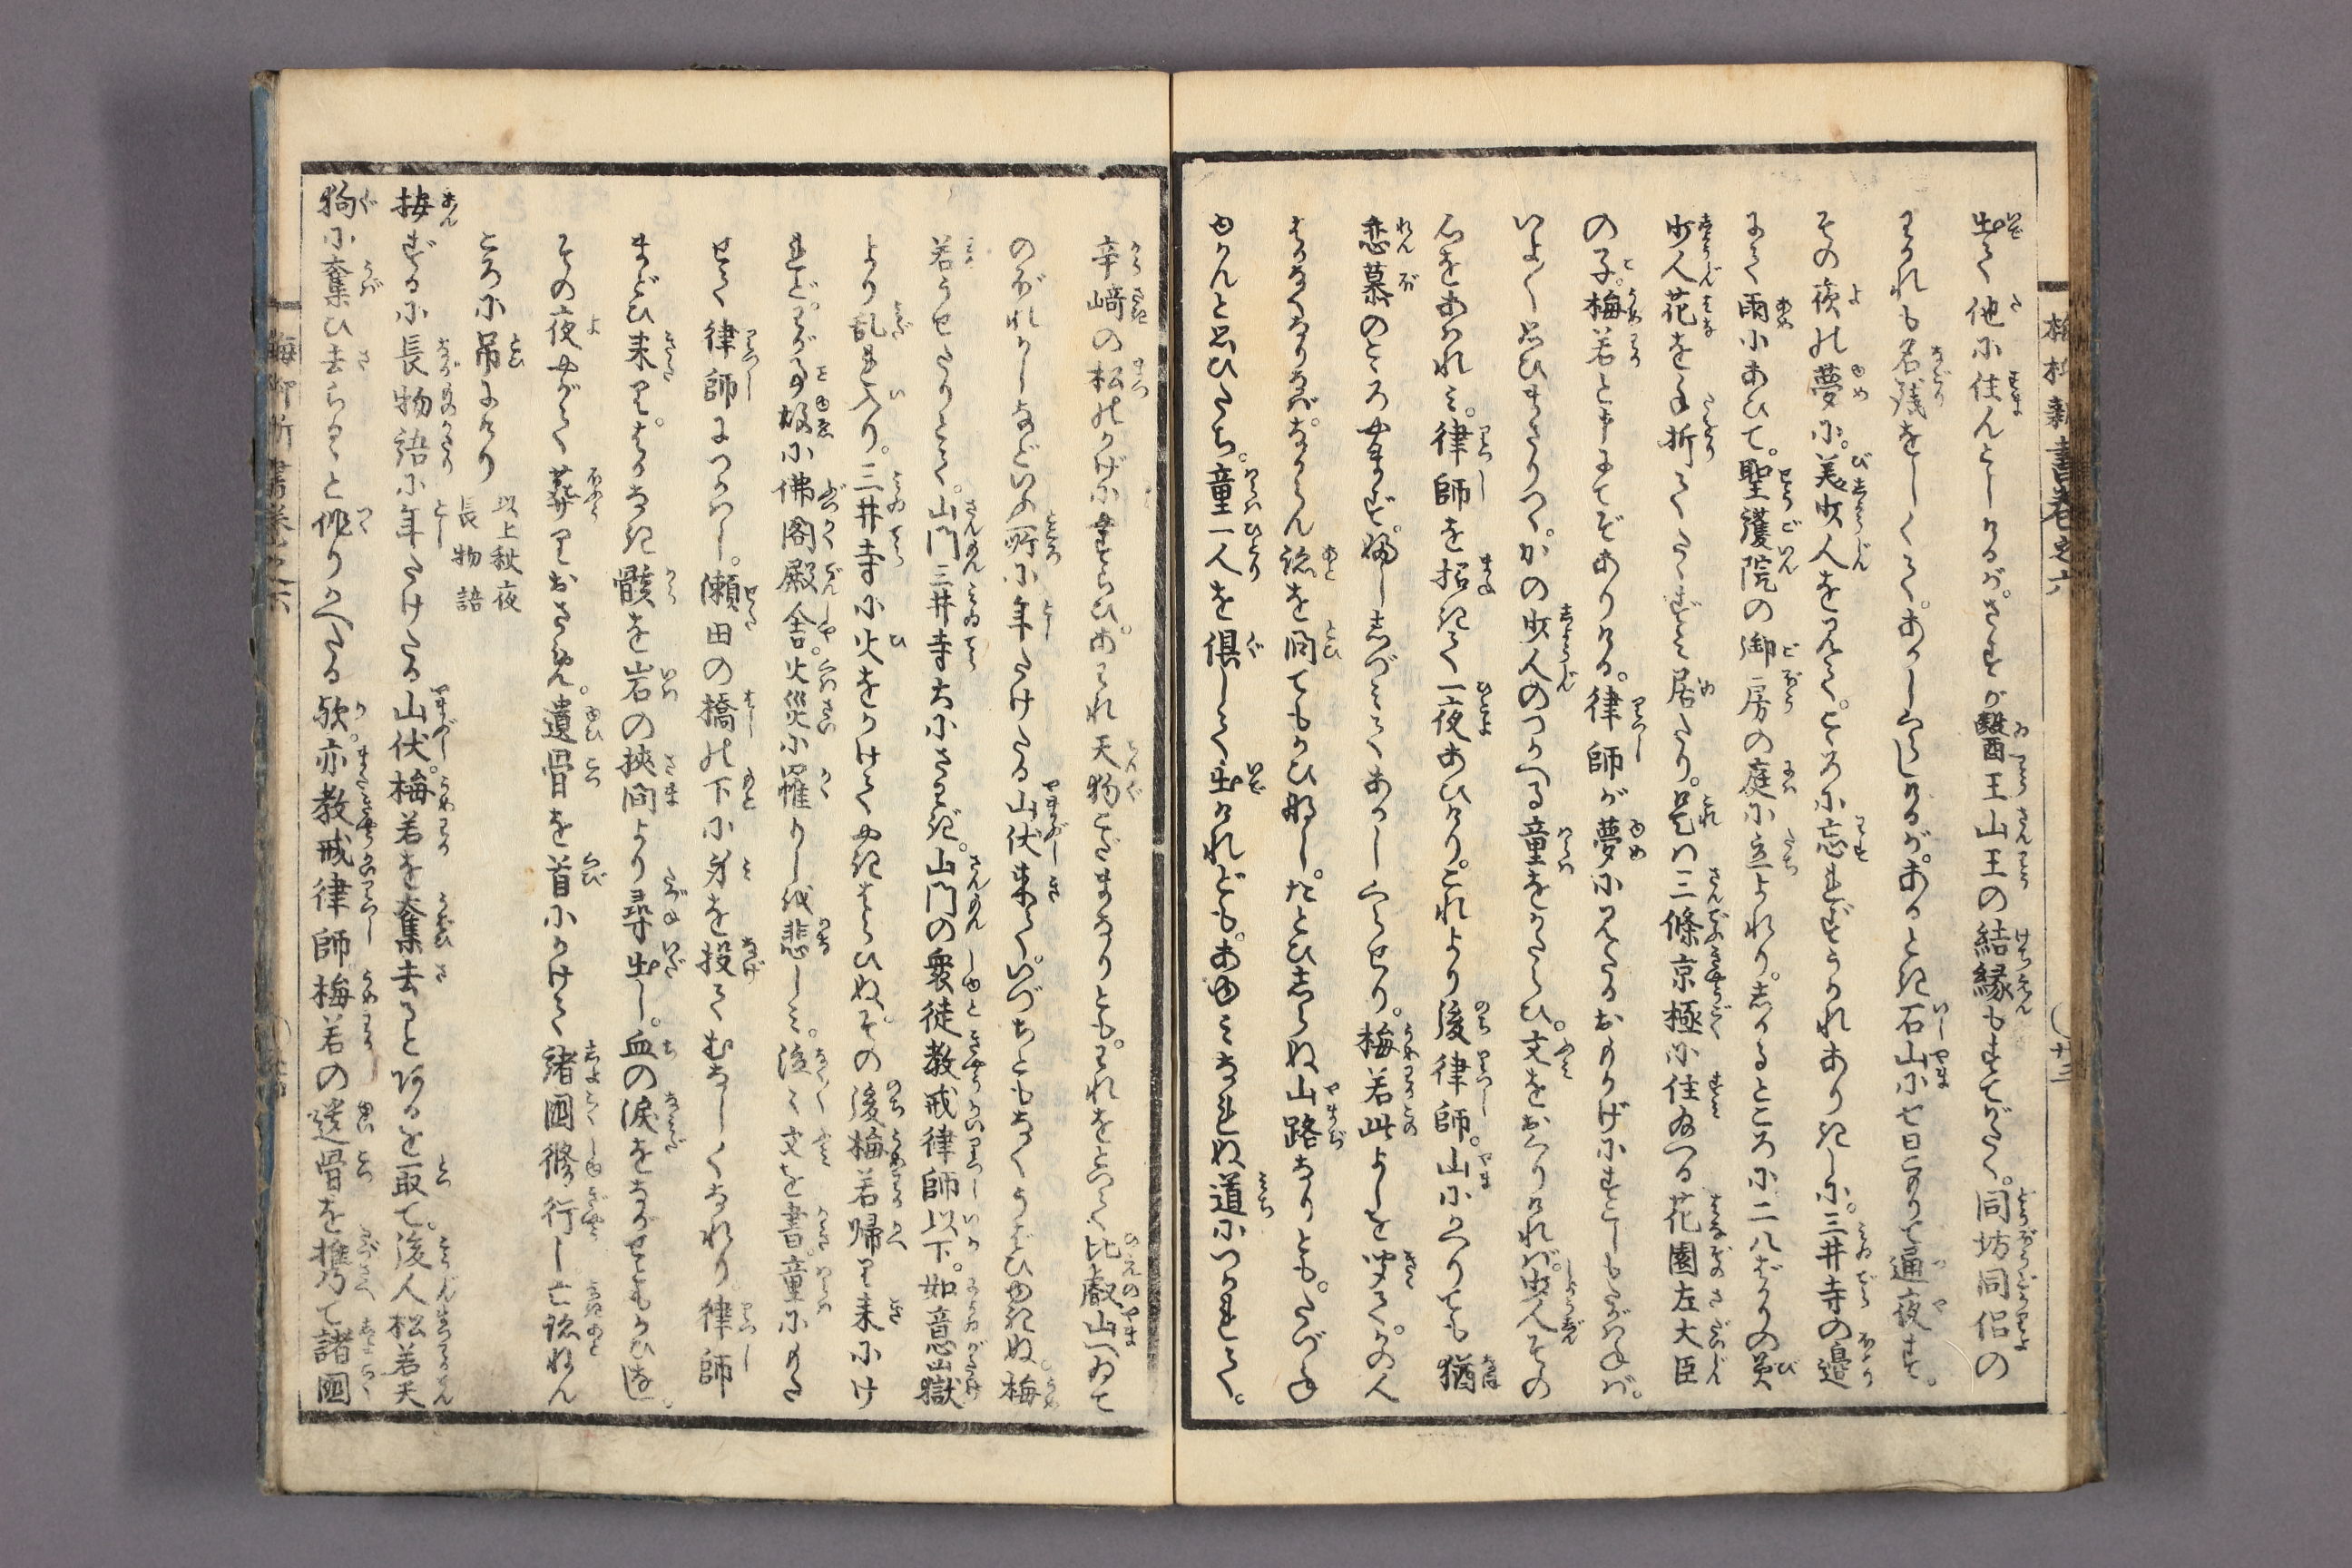 出て他に住んとしけるが。さすが醫王山王の結縁もすてがたく。同坊同侶の
わかれも名残をしくて。あかしくらしけるが。あるとき石山に七日こもりて通夜す。
その夜の夢に。美少人を見て。さらに忘れずうかれありきしに。三井寺の邊
にて雨にあひて。聖護院の御房の庭に立よれり。しかるところに二八ばかりの美
少人花を手折てたゝずみ居たり。是は三條京極に住給へる花園左大臣
の子。梅若と申にてぞありける。律師が夢に見たるおもかげにすこしもたがはねば。
いよ〳〵思ひまさりつゝ。かの少人のつかへる童をかたらひ。文をおくりければ。少人その
心をあはれみ。律師を招きて一夜あひけり。これより後律師。山にかへりても猶
恋慕のこゝろやまず。婦ししづみてあかしくらせり。梅若此よしを聞て。かの人
はかなくならば。なからん跡を問てもかひなし。たとひしらぬ山路なりとも。たづね
ゆかんと思ひたち。童一人を倶して出けれども。あゆみなれぬ道につかれて。
辛﨑の松のかげにやすらひ。あはれ天狗ばけものなりとも。われをとりて比叡山へゐて
のぼれかしなどいふ所に年たけたる山伏来て。いづちともなくうばひゆきぬ。梅
若うせたりとて。山門三井寺大にさわぎ。山門の衆徒教戒律師以下。如意嶽
より乱れ入り。三井寺に火をかけてやきはらひぬ。その後梅若帰り来にけ
れど。わがみの故に佛閣殿舎。火災に罹りしを悲しみ。泣く文を書。童にもた
せて律師につかはし。瀬田の橋の下に身を投てむなしくなれり。律師
まどひ来り。はかなき骸を岩の挾間より尋出し。血の涙をながせどもかひなし。
その夜やがて葬りおさめ。遺骨を首にかけて諸國修行し亡跡ねん
ごろに吊にけり 以上秋夜長物語
按ずるに長物語に年たけたる山伏。梅若を奪去ると作るを取て。後人松若天
狗に奪ひ去らるゝと作りかへたる歟。亦教戒律師梅若の遺骨を携て諸國